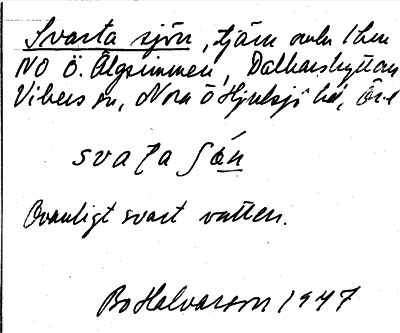 Svarta sjön, tjärn omkr 1 km
NO Ö. Älgsimmen, Dalkarshyttan
Vikers sn, Nora o Hjulsjö hd, Öre
svaʈa ʃön
Ovanligt svart vatten.
Bo Halvarson 1947